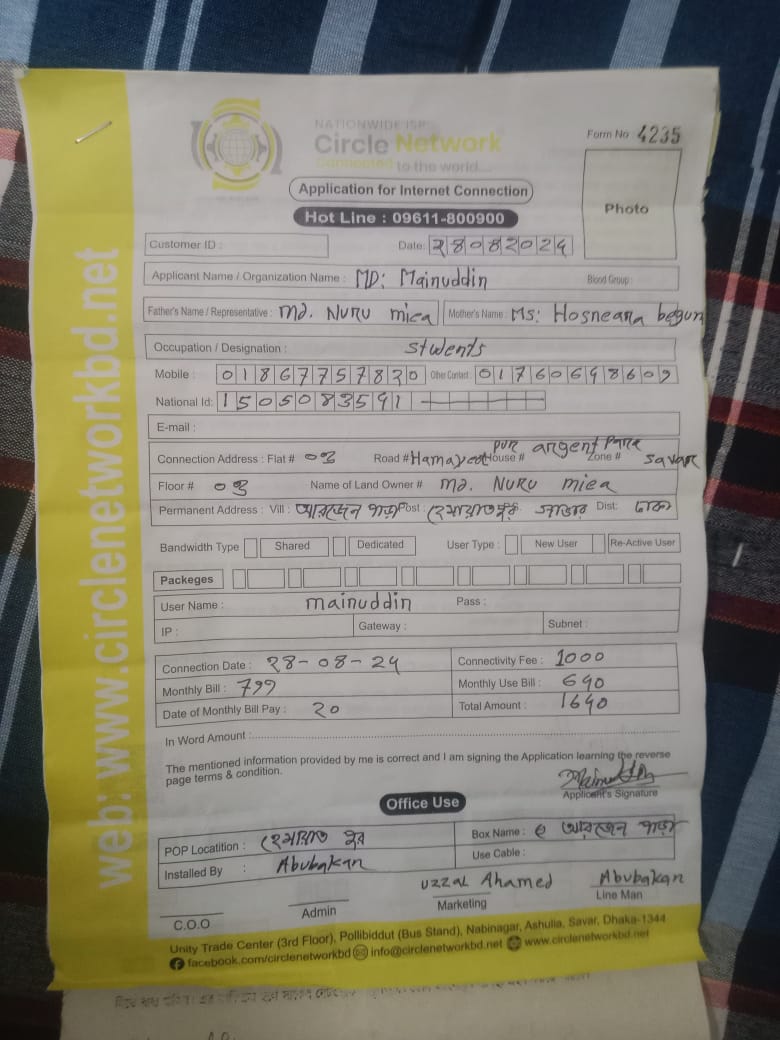 NATIONWIDE ISP
Circle Network
Connected to the world...
Form No 4235
Application for Internet Connection
Photo
Hot Line : 09611-800900
Customer ID :
Date: 28082024
Applicant Name / Organization Name : MD: Mainuddin Blood Group :
Father's Name / Representative : Md. NURU miea Mother's Name : Ms: Hosneara begum
Occupation / Designation : stwents
Mobile : 01867757820 Other Contact : 01760698609
National Id: 1505083591
E-mail :
Connection Address : Flat # 03 Road # House # argent Para Zone # savar
Floor # 03 Name of Land Owner # Md. NURU miea
Permanent Address : Vill : আরজেন পাড়া Post : হেমায়েতপুর সাভার Dist: ঢাকা
Bandwidth Type Shared Dedicated User Type : New User Re-Active User
Packeges
User Name : mainuddin Pass :
IP : Gateway : Subnet :
Connection Date : 28-08-24 Connectivity Fee : 1000
Monthly Bill : 799 Monthly Use Bill : 640
Date of Monthly Bill Pay : 20 Total Amount : 1640
In Word Amount :
The mentioned information provided by me is correct and I am signing the Application learning the reverse
page terms & condition.
Applicant's Signature
Office Use
POP Locatition : Box Name : আরজেন পাড়া
Installed By : Abubakan Use Cable :
Uzzal Ahamed Abubakan
C.O.O Admin Marketing Line Man
Unity Trade Center (3rd Floor), Pollibiddut (Bus Stand), Nabinagar, Ashulia, Savar, Dhaka-1344
facebook.com/circlenetworkbd info@circlenetworkbd.net www.circlenetworkbd.net
web: www.circlenetworkbd.net